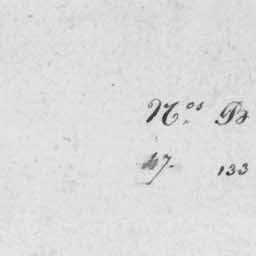 N.os B
47. 133